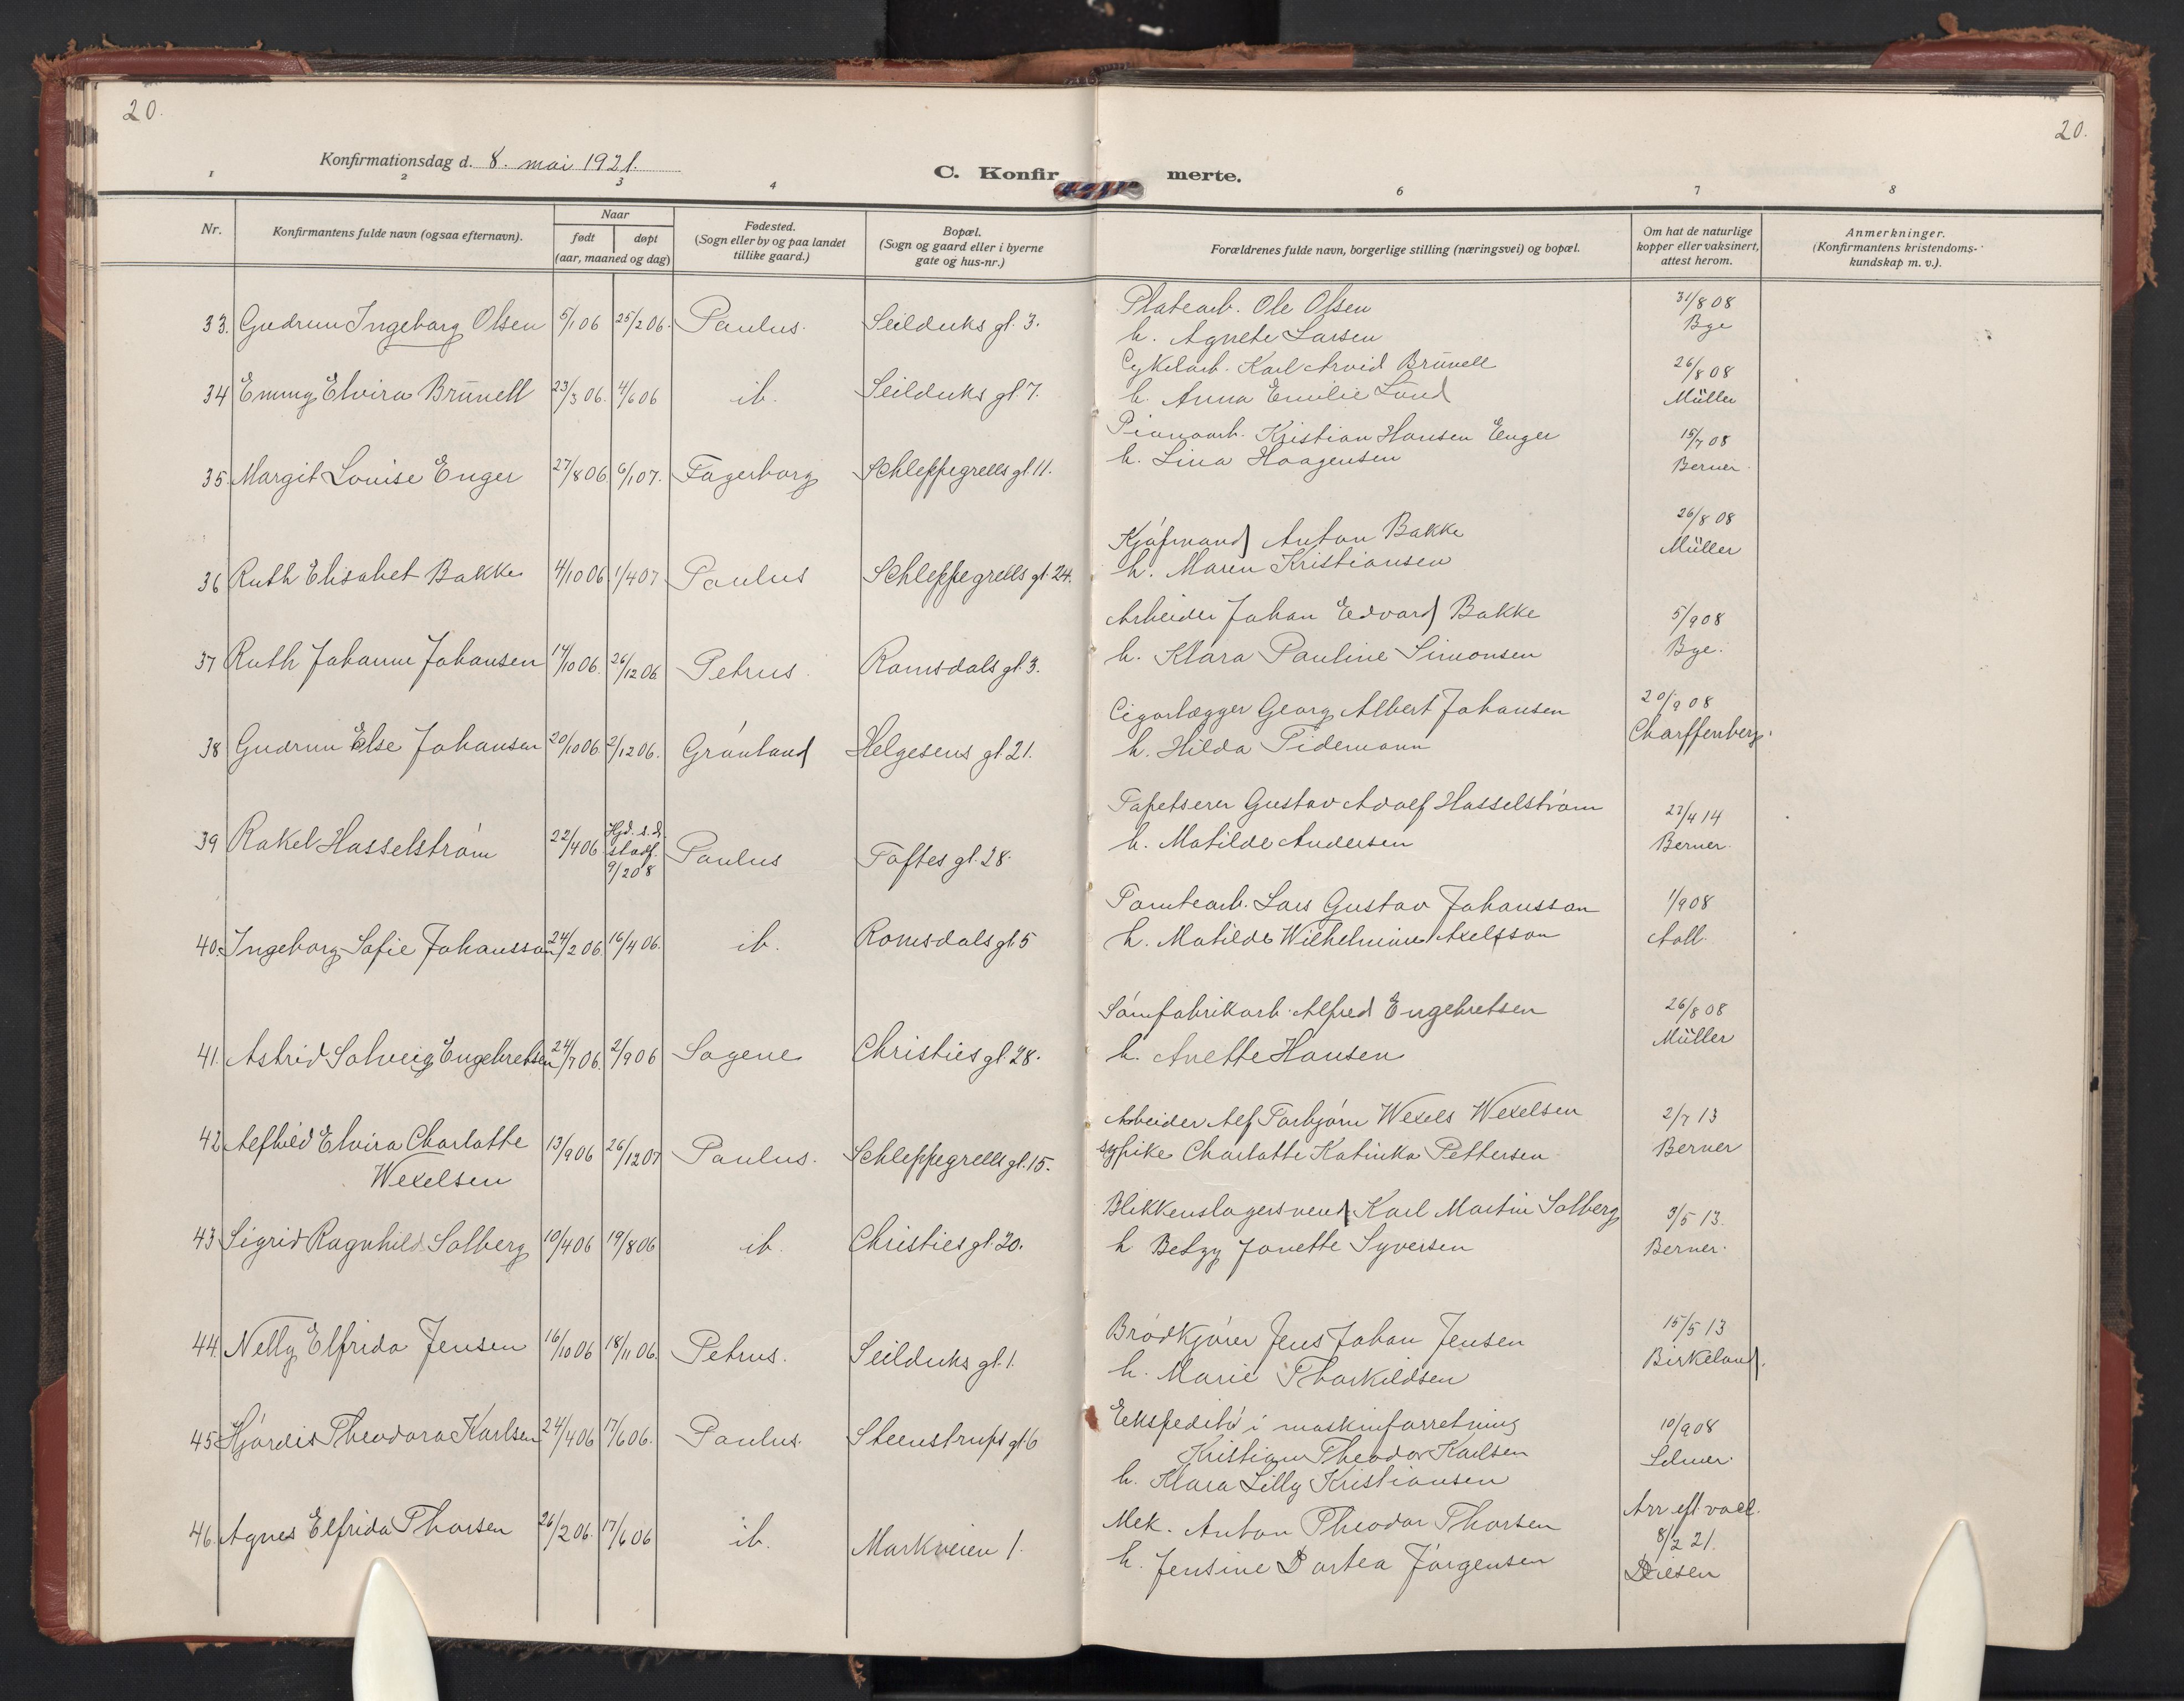 20.
20.
Konfirmationsdag d. 8. mai 1921.
C. Konfirmerte.
1 2 3 4 6 7 8
Nr.
Konfirmantens fulde navn (ogsaa efternavn).
Naar
født døpt
(aar, maaned og dag)
Fødested.
(Sogn eller by og paa landet
tillike gaard.)
Bopæl.
(Sogn og gaard eller i byerne
gate og hus-nr.)
Forældrenes fulde navn, borgerlige stilling (næringsvei) og bopæl.
Om hat de naturlige
kopper eller vaksinert,
attest herom.
Anmerkninger.
(Konfirmantens kristendoms-
kundskap m. v.).
33. Gudrun Ingeborg Olsen 5/1 06 25/2 06. Paulus. Seilduks gt. 3.
Platearb. Ole Olsen
h. Agnete Larsen
31/8 08
Bye
34 Emmy Elvira Brünell 23/3 06. 4/6 06 ib. Seilduks gt 7.
Cykelarb. Karl Arvid Brünell
h. Anna Emilie Lund
26/8 08
Müller
35. Margit Louise Enger 27/8 06 6/1 07. Fagerborg Schleppegrells gt. 11.
Pianoarb. Kristian Hansen Enger
h. Lina Haagensen
15/7 08
Berner.
36 Ruth Elisabet Bakke 4/10 06 1/4 07 Paulus Schleppegrells gt. 24.
Kjøpmand Anton Bakke
h. Maren Kristiansen
26/8 08
Müller
37 Ruth Johanne Johansen 14/10 06. 26/12 06 Petrus. Romsdals gt. 3.
Arbeider Johan Edvard Bakke
h. Klara Pauline Simonsen
5/9 08
Bye.
38 Gudrun Else Johansen 20/10 06. 2/12 06. Grønland Helgesens gt. 21.
Cigarlægger Georg Albert Johansen
h. Hilda Tidemann
20/9 08
Charffenberg.
39 Rakel Hasselstrøm 22/4 06 Hjd. s. d. stadf. 9/2 08 Paulus Toftes gt. 28.
Tapetserer Gustav Adolf Hasselstrøm
h. Matilde Andersen
27/4 14
Berner.
40. Ingeborg Sofie Johansson 24/2 06. 16/4 06. ib. Romsdals gt. 5
Tomtearb. Lars Gustav Johansson
h. Matilde Wilhelmine Axelsson
1/9 08
Aall.
41. Astrid Solveig Engebretsen 24/7 06. 2/9 06 Sagene Christies gt. 28.
Sømfabrikarb. Alfred Engebretsen
h. Anette Hansen
26/8 08
Müller
42 Alfhild Elvira Charlotte
Wexelsen 13/9 06 26/12 07 Paulus. Schleppegrells gt. 15.
Arbeider Alf Torbjørn Wexels Wexelsen
sypike Charlotte Katinka Pettersen
2/7 13
Berner
43 Sigrid Ragnhild Solberg 10/4 06 19/8 06 ib. Christies gt. 20.
Blikkenslagersvend Karl Martin Solberg
h Betzy Janette Syversen
3/5 13.
Berner.
44. Nelly Elfrida Jensen 16/10 06 18/11 06. Petrus. Seilduks gt. 1.
Brødkjører Jens Johan Jensen
h. Marie Thorkildsen
15/5 13
Birkeland.
45 Hjørdis Theodora Karlsen 24/4 06 17/6 06. Paulus. Steenstrups gt 6
Ekspeditør i maskinforretning
Kristian Theodor Karlsen
h. Klara Lilly Kristiansen
10/9 08
Selmer.
46. Agnes Elfrida Thorsen 26/2 06. 17/6 06 ib. Markveien 1.
Mek. Anton Theodor Thorsen
h. Jensine Dortea Jørgensen
Arr eft. vacc.
8/2 21.
Diesen